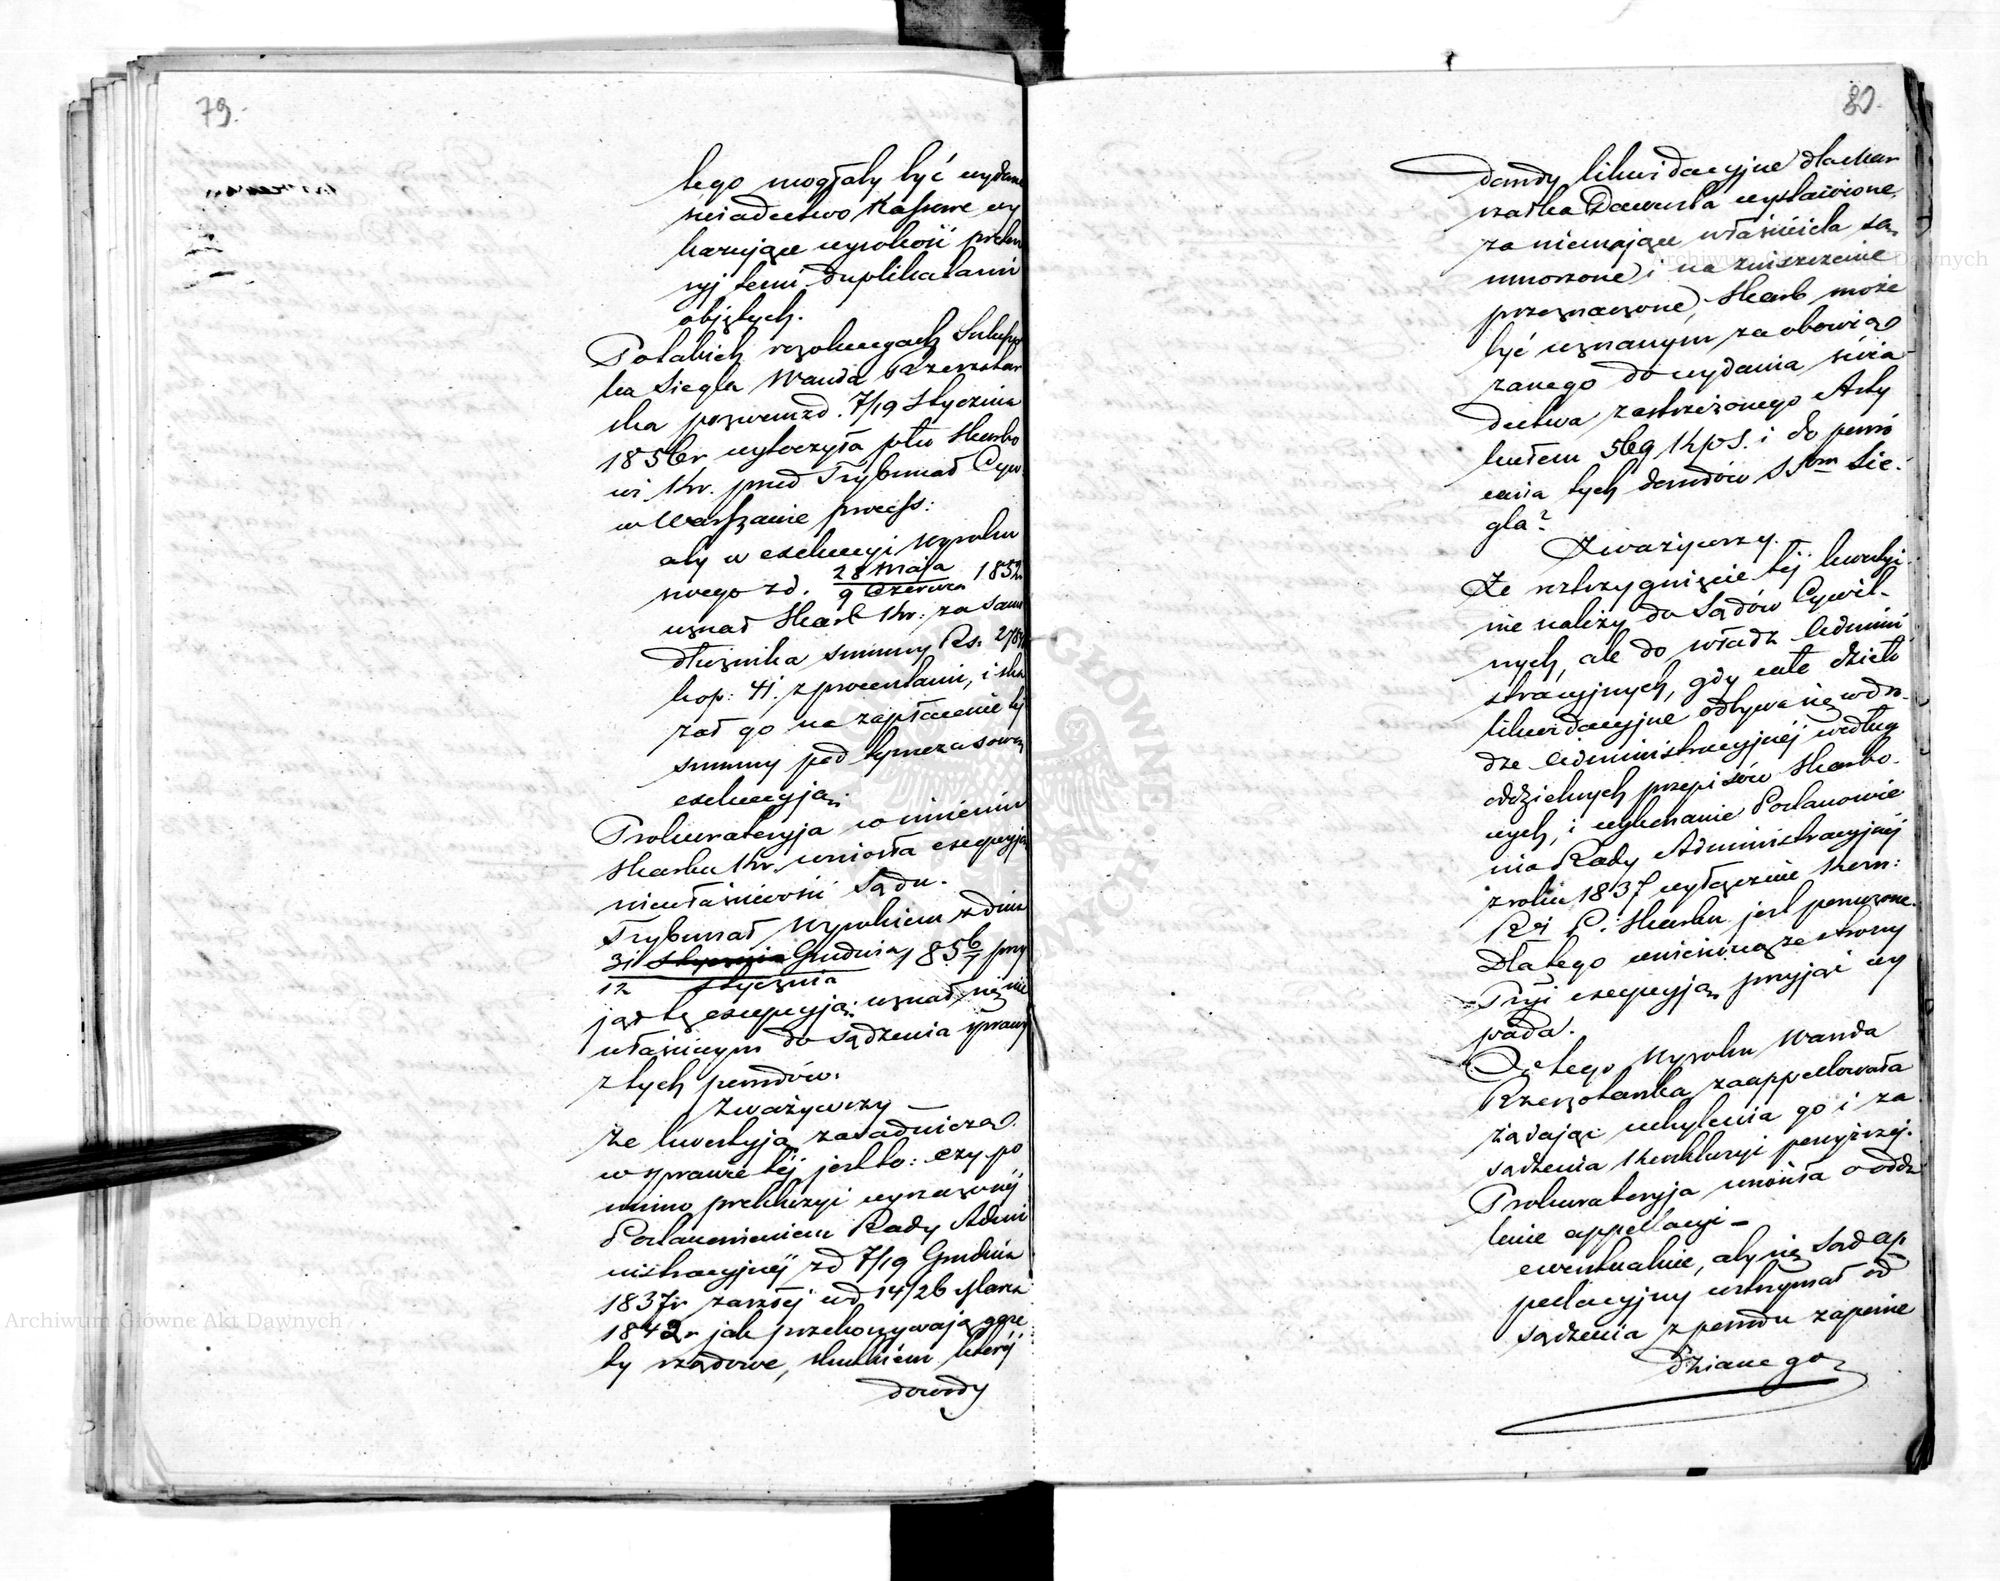 79.
tego mogłaby być wydane
świadectwo Kassowe wy
kazujące wysokość preten
syj temi duplikatami
objętych.
Po takich rezolucyach Sukcess
ka Siegla Wanda Rzeszotar
ska pozwem z d. 7/19 Stycznia
1856r wytoczyła pko Skarbo
wi Kr. przed Trybunał Cyw.
w Warszawie process:
aby w exekucyi Wyroku
swego z d. 28 Maja 1852
9 Czerwca
uznał Skarb Kr: za samo
dłużnika summy Rs. 278
kop: 41. z procentami, i ska
zał go na zapłacenie tej
summy pod tymczasową
exekucyją.
Prokuratorya w imieniu
Skarbu Kr. wniosła excepcyją
niewłaściwości Sądu.
Trybunał Wyrokiem z dnia
31 Grudnia 1856/7 przy
12 Stycznia
jął tę excepcyją: uznał się nie
właściwym do sądzenia sprawy
z tych powodów.
Zważywszy —
Że kwestyją zasadniczą
w sprawie tej jest to: czy po
mimo prekluzyi wyrażonej
Postanowieniem Rady Admi
nistracyjnej z d 7/19 Grudnia
1837r zaszłej w d 14/26 Marca
1842r jak przekonywają gaze
ty rządowe, skutkiem której
dowody
80.
dowody likwidacyjne dla Mar
szałka Davousta wystawione,
za niemające właściciela są
umorzone i na zniszczenie
przeznaczone, Skarb może
być uznanym za obowią
zanego do wydania świa
dectwa zastrzeżonego Arty
kułem 569 KpS. i do powró
cenia tych dowodów SSom Sie-
gla?
Zważywszy.
Że roztrzygnięcie tej kwestyi
nie należy do Sądów Cywil-
nych, ale do władz Admini
stracyjnych, gdy całe dzieło
likwidacyjne odbywa się w dro-
dze Administracyjnej według
oddzielnych przepisów Skarbo-
wych, i wykonanie Postanowie
nia Rady Administracyjnej
z roku 1837 wyłącznie Kom:
Rej P. i Skarbu jest poruczone.
Dlatego wniesioną ze strony
Tejże excepcyją przyjąć wy
pada.
Od tego Wyroku Wanda
Rzeszotarska zaappellowała
żądając uchylenia go i za
sądzenia Konkluzyi powyższej.
Prokuratorya wniosła o oddz
lenie appellacyi —
ewentualnie, aby się Sąd ap
pellacyjny wstrzymał od
sądzenia z powodu zapowie
dzianego
Archiwum Główne Akt Dawnych
Archiwum Główne Akt Dawnych